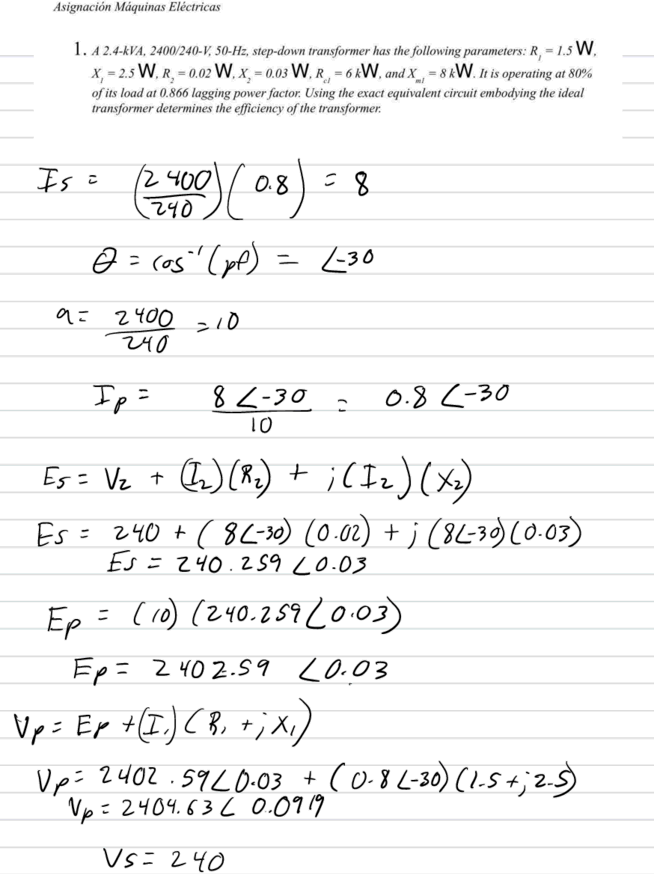 Asignación Máquinas Eléctricas
1. A 2.4-kVA, 2400/240-V, 50-Hz, step-down transformer has the following parameters: R₁ = 1.5 W,
X₁ = 2.5 W, R₂ = 0.02 W, X₂ = 0.03 W, R_c1 = 6 kW, and X_m1 = 8 kW. It is operating at 80%
of its load at 0.866 lagging power factor. Using the exact equivalent circuit embodying the ideal
transformer determines the efficiency of the transformer.
Is = (2400/240)(0.8) = 8
θ = cos⁻¹(pf) = ∠-30
a = 2400/240 = 10
Ip = 8∠-30/10 = 0.8∠-30
Es = V₂ + (I₂)(R₂) + j(I₂)(X₂)
Es = 240 + (8∠-30)(0.02) + j(8∠-30)(0.03)
Es = 240.259∠0.03
Ep = (10)(240.259∠0.03)
Ep = 2402.59 ∠0.03
Vp = Ep + (I₁)(R₁ + jX₁)
Vp = 2402.59∠0.03 + (0.8∠-30)(1.5+j2.5)
Vp = 2404.63∠0.0919
Vs = 240